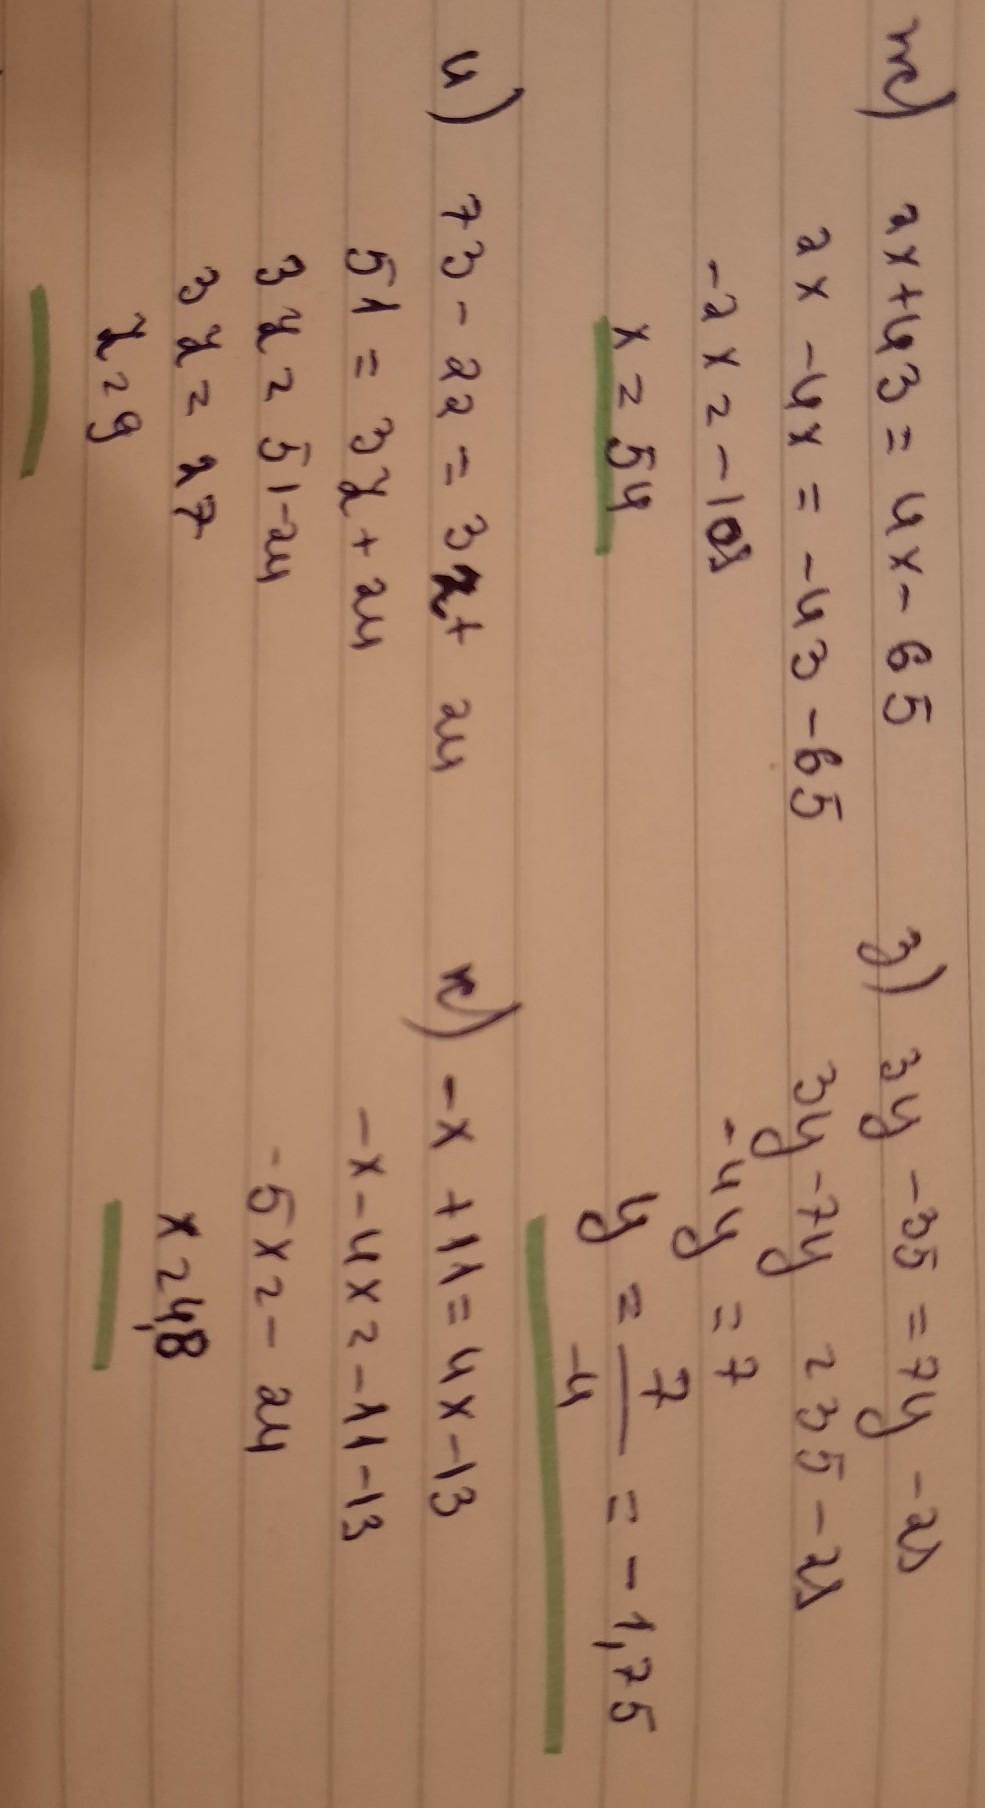 ж) 2x+43 = 4x - 65
2x - 4x = -43 - 65
-2x = -108
x = 54
з) 3y - 35 = 7y - 28
3y - 7y = 35 - 28
-4y = 7
y = 7/-4 = -1,75
и) 73 - 22 = 3z + 24
51 = 3z + 24
3z = 51-24
3z = 27
z = 9
к) -x + 11 = 4x - 13
-x - 4x = -11 - 13
-5x = -24
x = 4,8